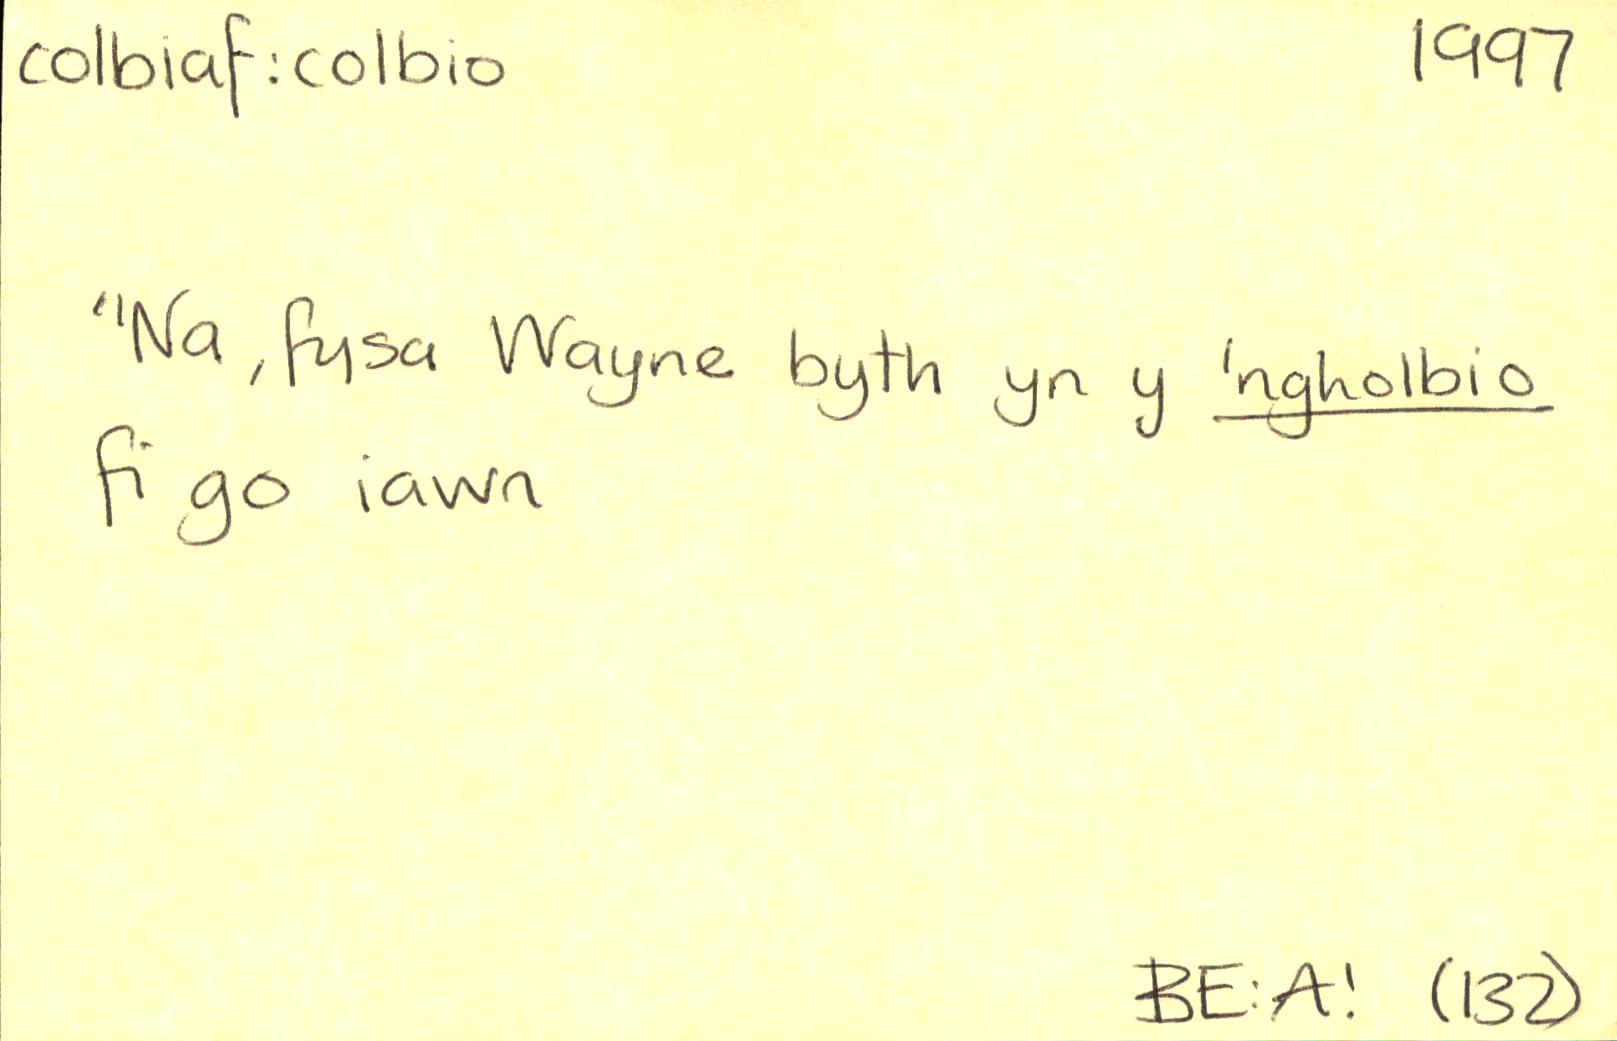 colbiaf:colbio 1997
"Na, fysa Wayne byth yn y 'ngholbio
fi go iawn
BE:A! (132)